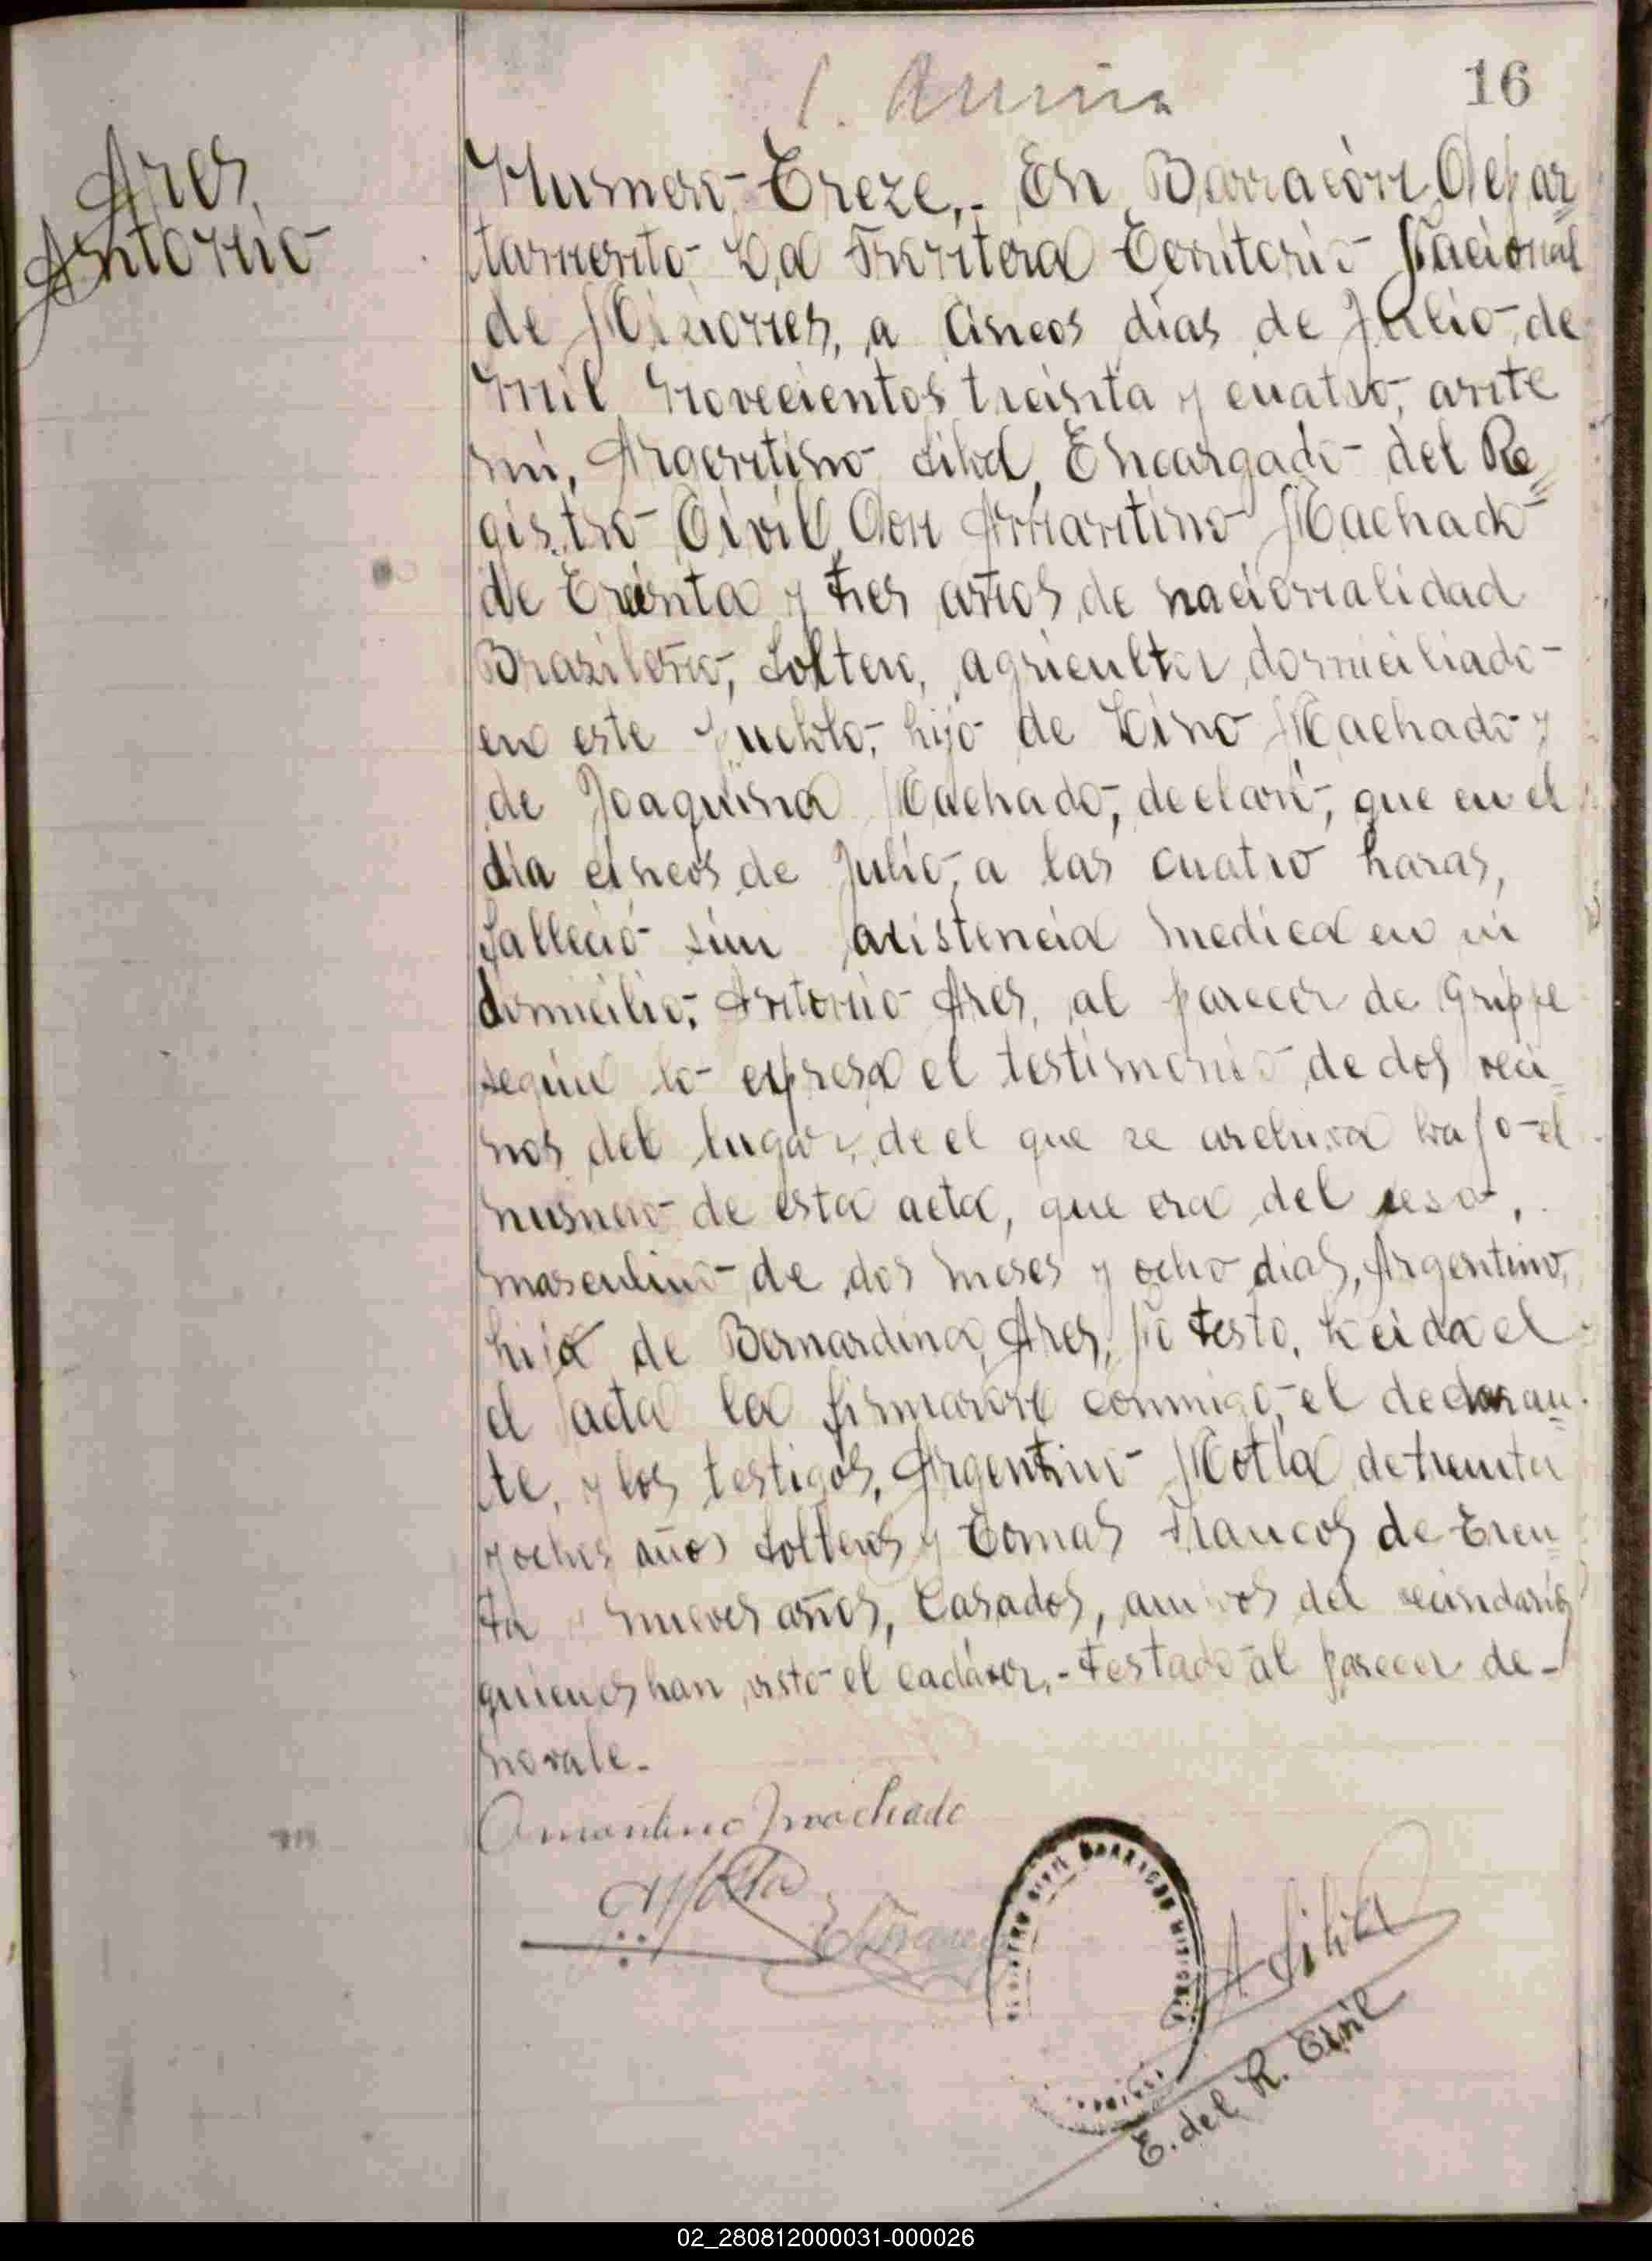 16
Ares
Antonio
Numero Treze,. En Barracón Depar
tamento La Frontera Territorio Nacional
de Misiones, a cincos dias de Julio de
mil novecientos treinta y cuatro, ante
mi, Argentino Silva, Encargado del Re
gistro Civil, Don Amantino Machado
de treinta y tres años, de nacionalidad
Brazileño, Soltero, agricultor, domiciliado
en este pueblo, hijo de Lino Machado y
de Joaquina Machado, declaró, que en el
dia cincos de Julio, a las cuatro horas,
falleció sin asistencia medica en su
domicilio, Antonio Ares, al parecer de Grippe
según lo expresa el testimonio de dos veci
nos del lugar, de el que se archiva bajo el
numero de esta acta, que era del sexo,
masculino de dos meses y ocho dias, Argentino,
hijo de Bernardina, Ares, No testo, Leida el
el acta la firmaron conmigo, el declaran
te, y los testigos, Argentino Motta de treinta
y ochos años Solteros y Tomas Francos de Trein
ta nueves años, Casados, ambos del vecindario
quienes han visto el cadáver,- Testado al parecer de-
no vale.
Amantino Machado
AMotta
TFranco
A Silva
E. del R. Civil
02_280812000031-000026